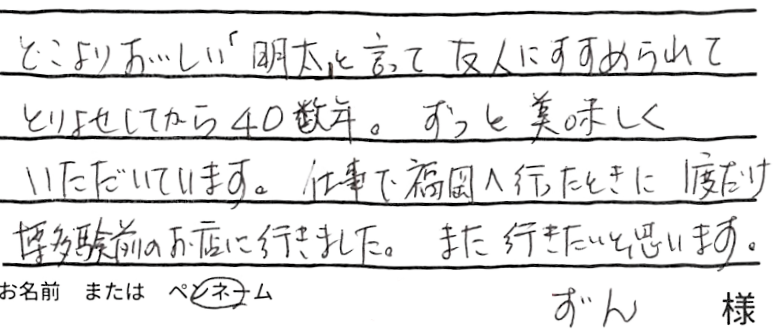 どこよりおいしい「明太」と言って 友人にすすめられて
とりよせしてから40数年。 ずっと美味しく
いただいています。 仕事で福岡へ行ったときに 1度だけ
博多駅前のお店に行きました。 また行きたいと思います。
お名前 または ペンネーム
ずん 様